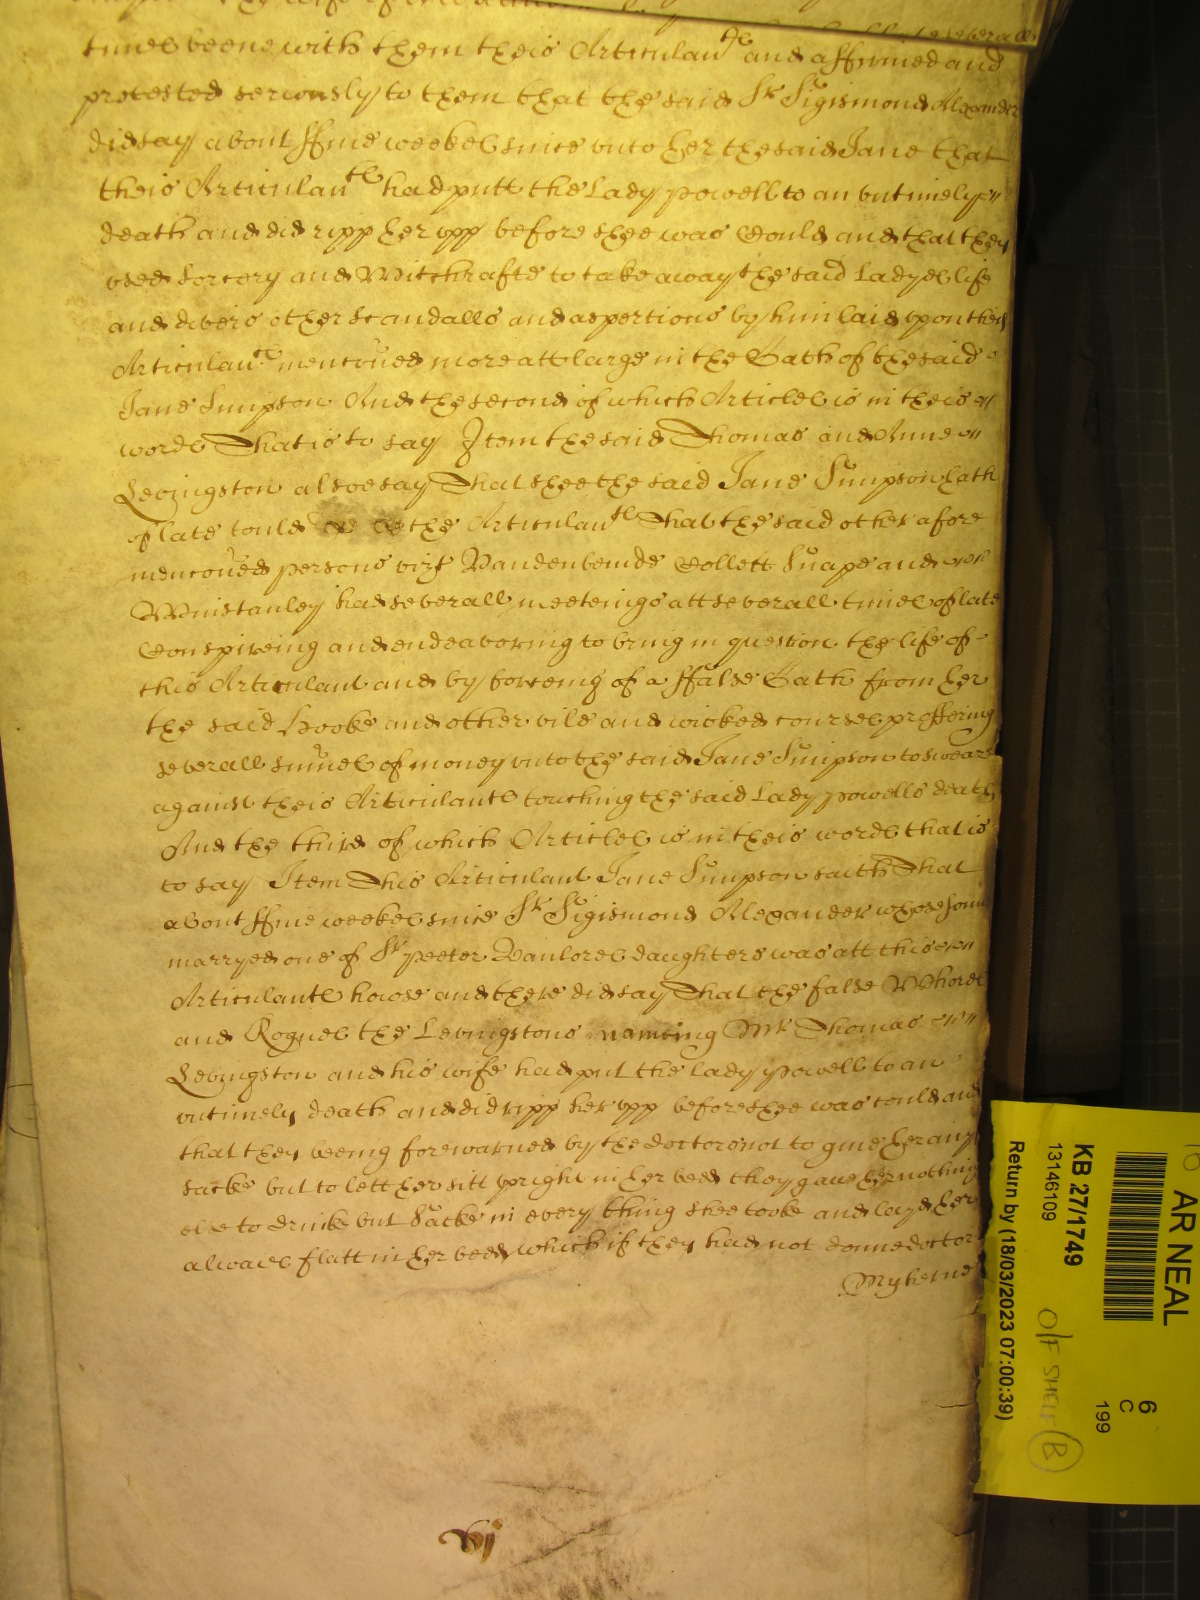 tymes beene with them theis Articulantes and affirmed and
protested seriously to them that the said Sr Sigismond Alexander
did say about ffiue weekes since vnto her the said Jane that
theis Articulantes had putt the Lady Powell to an vntimely
death and did ripp her vpp before shee was Could and that they
vsed Sorcery and Witchcrafte to take away the said Ladyes life
and divers other scandalls and aspertions by him laid vpon theis
Articulantes menconed more att large in the Oath of the said
Jane Simpson And the second of which Articles is in theis
words That is to say Item the said Thomas and Anne
Levingston alsoe say That shee the said Jane Simpson hath
of late tould the Articulantes That the said other afore
menconed persons vizt Vandenbemde Collett Snape and
Winstanley had severall meetings att severall times of late
Conspireing and endeavoring to bring in question the life of
this Articulant and by forceing of a ffalse Oath from her
the said Hooke and other vile and wicked courses proffering
severall summes of money vnto the said Jane Simpson to sweare
against theis Articulantes touching the said Lady Powells death
And the third of which Articles is in theis words that is
to say Item This Articulant Jane Simpson saith That
about ffiue weekes since Sr Sigismond Alexander whose sonne
marryed one of Sr Peeter Vanlores daughters was att this
Articulantes howse and there did say That the false Whores
and Rogues the Levingstons nameing Mr Thomas
Levingston and his wife had put the Lady Powell to an
vntimely death and did ripp her vpp before shee was could and
that they beeing forewarned by the doctors not to giue her any
sacke but to lett her sitt vpright in her bedd they gaue her nothing
else to drinke but Sacke in every thing shee tooke and layd her
alwaies flatt in her bedd which if they had not donne doctor
Mykerne
vj
AR NEAL
KB 27/1749
13146109
Return by (18/03/2023 07:00:39)
6
C
199
O/F SHELF B